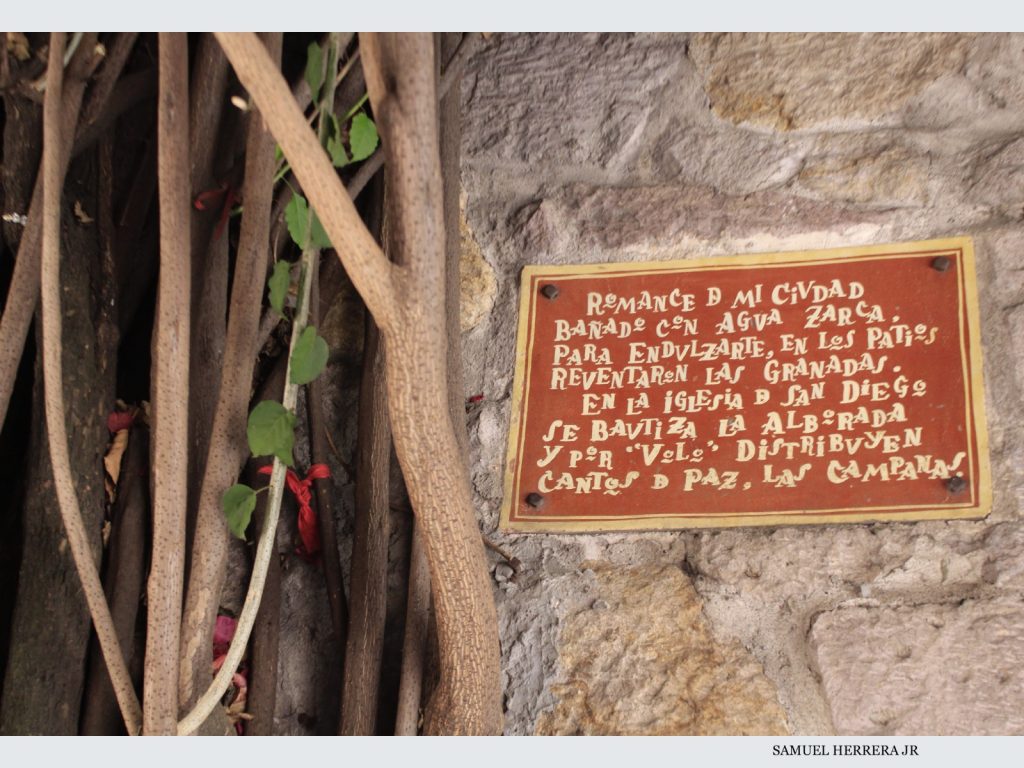 ROMANCE D MI CIVDAD
BAÑADO CON AGVA ZARCA.
PARA ENDVLZARTE, EN LOS PATIOS
REVENTARON LAS GRANADAS.
EN LA IGLESIA D SAN DIEGO
SE BAVTIZA LA ALBORADA
Y POR "VOLO" DISTRIBVYEN
CANTOS D PAZ, LAS CAMPANAS.
SAMUEL HERRERA JR